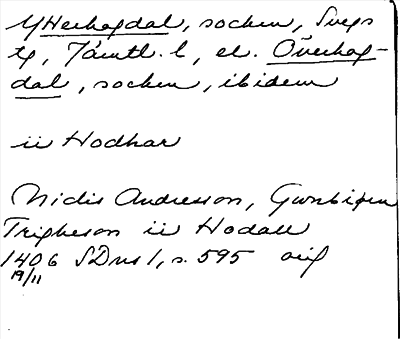 Ytterhogdal, socken, Svegs
tg, Jämtl. l, el. Överhog-
dal, socken, ibidem
ii Hodhar
Nidis Andresson, Gwnbiørn
Trigheson ii Hodall
1406 SDns 1, s. 595 orig
19/11